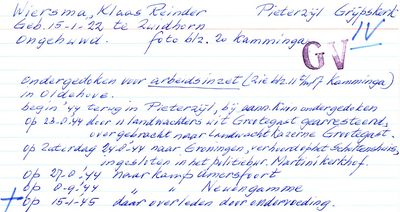 Wiersma, Klaas Reinder Pieterzijl Grijpskerk
Geb. 15-1-22 te Zuidhorn IV
Ongehuwd. foto blz. 20 Kamminga
GV
ondergedoken voor arbeidsinzet (zie blz. 11 Kamminga)
in Oldehove.
begin '44 terug in Pieterzijl, bij aann. Kun ondergedoken
op 23-8-'44 door 11 landwachters uit Grotegast gearresteerd,
overgebracht naar landwacht kazerne Grotegast.
op Zaterdag 24-8-'44 naar Groningen, verhoord op het Scholtenshuis,
ingesloten in het politiebur. Martinikerkhof.
op 27-8-'44 naar kamp Amersfoort
op 8-9-'44 " " Neuengamme
+ op 15-1-45 daar overleden door ondervoeding.